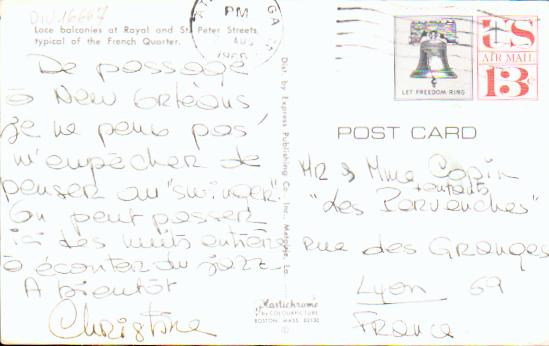 DIV16667
Lace balconies at Royal and St. Peter Streets,
typical of the French Quarter.
PM
GA
AUG
LET FREEDOM RING
US
AIR MAIL
13c
De passage
à New Orléans
je ne peux pas
m'empêcher de
penser au "swinger".
On peut passer
ici des nuits entières
à écouter du jazz.
A bientôt
Christine
Dist. by Express Publishing Co. Inc., Metairie, La.
Plastichrome
BY COLOURPICTURE
BOSTON MASS 02130
©
POST CARD
Mr & Mme Copin
enfants
"Les Pervenches"
rue des Granges
Lyon 69
France